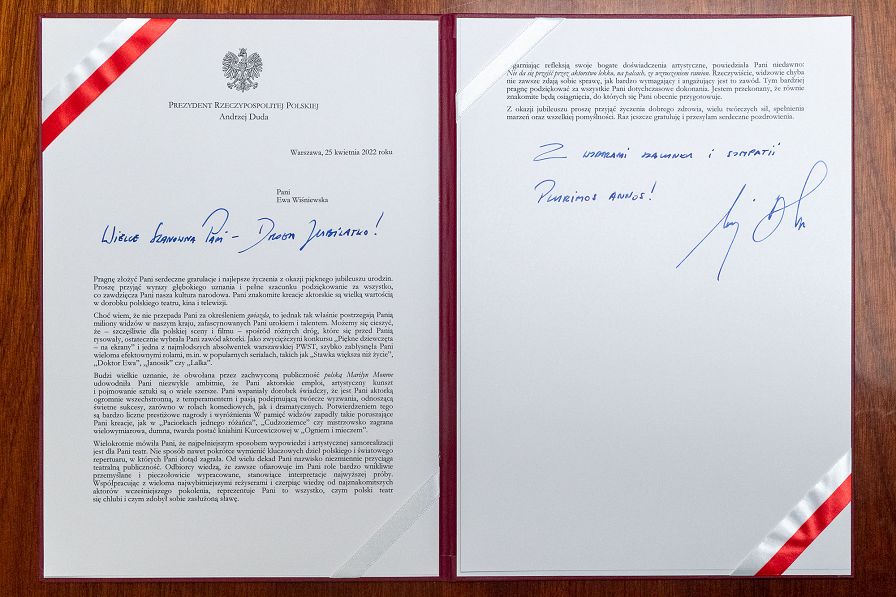 PREZYDENT RZECZYPOSPOLITEJ POLSKIEJ
Andrzej Duda
Warszawa, 25 kwietnia 2022 roku
Pani
Ewa Wiśniewska
WIELCE SZANOWNA PANI – DROGA JUBILATKO!
Pragnę złożyć Pani serdeczne gratulacje i najlepsze życzenia z okazji pięknego jubileuszu urodzin.
Proszę przyjąć wyrazy głębokiego uznania i pełne szacunku podziękowanie za wszystko,
co zawdzięcza Pani nasza kultura narodowa. Pani znakomite kreacje aktorskie są wielką wartością
w dorobku polskiego teatru, kina i telewizji.
Choć wiem, że nie przepada Pani za określeniem gwiazda, to jednak tak właśnie postrzegają Panią
miliony widzów w naszym kraju, zafascynowanych Pani urokiem i talentem. Możemy się cieszyć,
że – szczęśliwie dla polskiej sceny i filmu – spośród różnych dróg, które się przed Panią
rysowały, ostatecznie wybrała Pani zawód aktorki. Jako zwyciężczyni konkursu „Piękne dziewczęta
– na ekrany” i jedna z najmłodszych absolwentek warszawskiej PWST, szybko zabłysnęła Pani
wieloma efektownymi rolami, m.in. w popularnych serialach, takich jak „Stawka większa niż życie”,
„Doktor Ewa”, „Janosik” czy „Lalka”.
Budzi wielkie uznanie, że obwołana przez zachwyconą publiczność polską Marilyn Monroe
udowodniła Pani niezwykle ambitnie, że Pani aktorskie emploi, artystyczny kunszt
i pojmowanie sztuki są o wiele szersze. Pani wspaniały dorobek świadczy, że jest Pani aktorką
ogromnie wszechstronną, z temperamentem i pasją podejmującą twórcze wyzwania, odnoszącą
świetne sukcesy, zarówno w rolach komediowych, jak i dramatycznych. Potwierdzeniem tego
są bardzo liczne prestiżowe nagrody i wyróżnienia W pamięć widzów zapadły takie poruszające
Pani kreacje, jak w „Paciorkach jednego różańca”, „Cudzoziemce” czy mistrzowsko zagrana
wielowymiarowa, dumna, twarda postać kniahini Kurcewiczowej w „Ogniem i mieczem”.
Wielokrotnie mówiła Pani, że najpełniejszym sposobem wypowiedzi i artystycznej samorealizacji
jest dla Pani teatr. Nie sposób nawet pokrótce wymienić kluczowych dzieł polskiego i światowego
repertuaru, w których Pani dotąd zagrała. Od wielu dekad Pani nazwisko niezmiennie przyciąga
teatralną publiczność. Odbiorcy wiedzą, że zawsze ofiarowuje im Pani role bardzo wnikliwie
przemyślane i pieczołowicie wypracowane, stanowiące interpretacje najwyższej próby.
Współpracując z wieloma najwybitniejszymi reżyserami i czerpiąc wiedzę od najznakomitszych
aktorów wcześniejszego pokolenia, reprezentuje Pani to wszystko, czym polski teatr
się chlubi i czym zdobył sobie zasłużoną sławę.
Ogarniając refleksją swoje bogate doświadczenia artystyczne, powiedziała Pani niedawno:
Nie da się przejść przez aktorstwo lekko, na palcach, ze wzruszeniem ramion. Rzeczywiście, widzowie chyba
nie zawsze zdają sobie sprawę, jak bardzo wymagający i angażujący jest to zawód. Tym bardziej
pragnę podziękować za wszystkie Pani dotychczasowe dokonania. Jestem przekonany, że równie
znakomite będą osiągnięcia, do których się Pani obecnie przygotowuje.
Z okazji jubileuszu proszę przyjąć życzenia dobrego zdrowia, wielu twórczych sił, spełnienia
marzeń oraz wszelkiej pomyślności. Raz jeszcze gratuluję i przesyłam serdeczne pozdrowienia.
Z WYRAZAMI SZACUNKU I SYMPATII
PLURIMOS ANNOS!